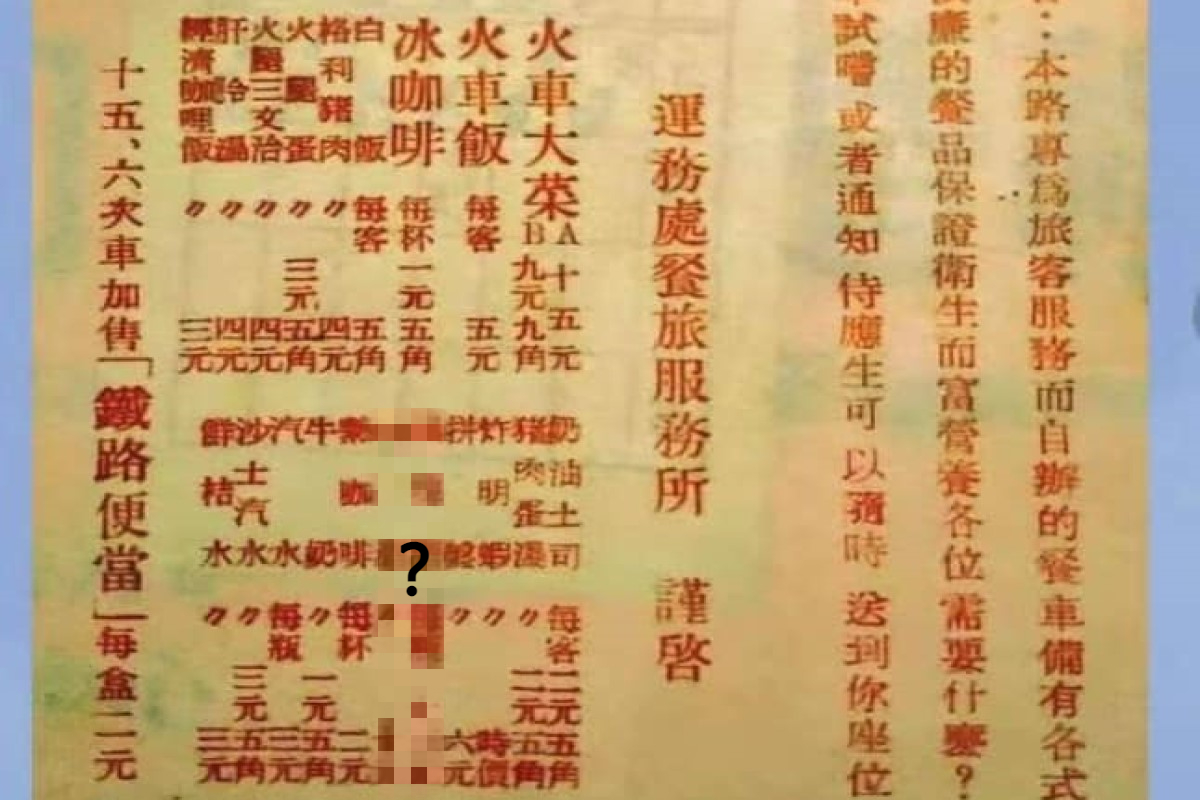 ：本路專爲旅客服務而自辦的餐車備有各式
廉的餐品保證衛生而富營養各位需要什麼？
試嚐或者通知侍應生可以隨時送到你座位
運務處餐旅服務所 謹啓
火車大菜 A 十五元
B 九元九角
火車飯 每客 五元
冰咖啡 每杯 一元五角
白飯 每客 五角
格利豬肉 〃 四元
火腿蛋 〃 三元五角
火腿三文治 〃 四元
肝 〃 四元
經濟咖哩飯 〃 三元
奶油土司 每客 二元五角
豬肉蛋湯 〃 二元五角
炸明蝦 〃 時價
拼盤 〃 六元
?
熱咖啡 每杯 二元
牛奶 〃 一元五角
汽水 每瓶 三元
沙士汽水 〃 三元五角
鮮桔水 〃 三元
十五、六次車加售「鐵路便當」每盒二元